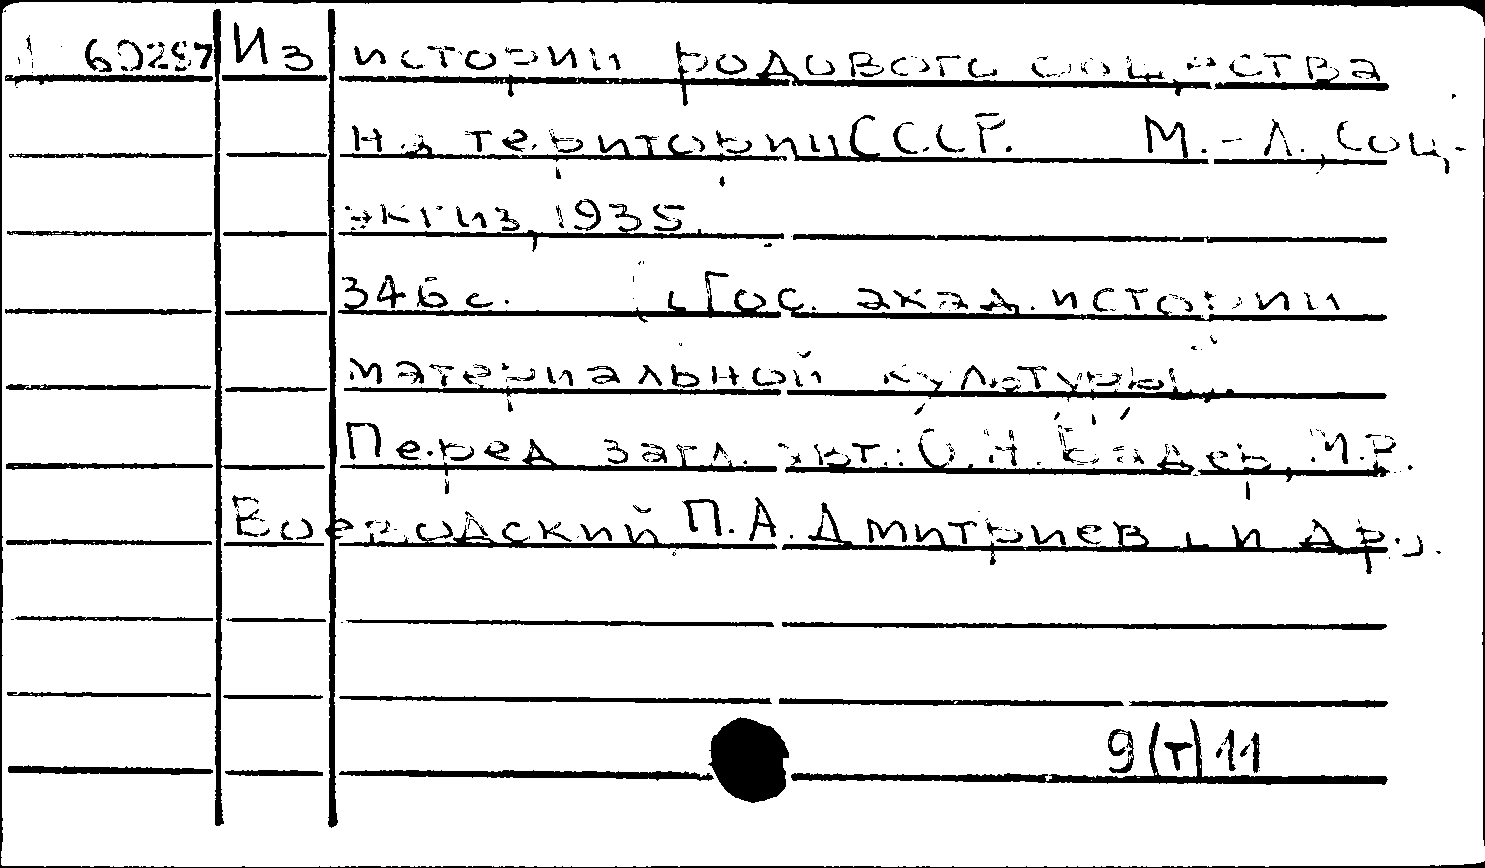 69287 Из истории родового общества
на територии СССР. М.-Л., Соц-
экгиз, 1935.
346 с. (Гос. акад. истории
материальной культуры).
Перед загл. авт.: О.Н. Бадер, М.В.
Воеводский П.А. Дмитриев и др.
9(т)11